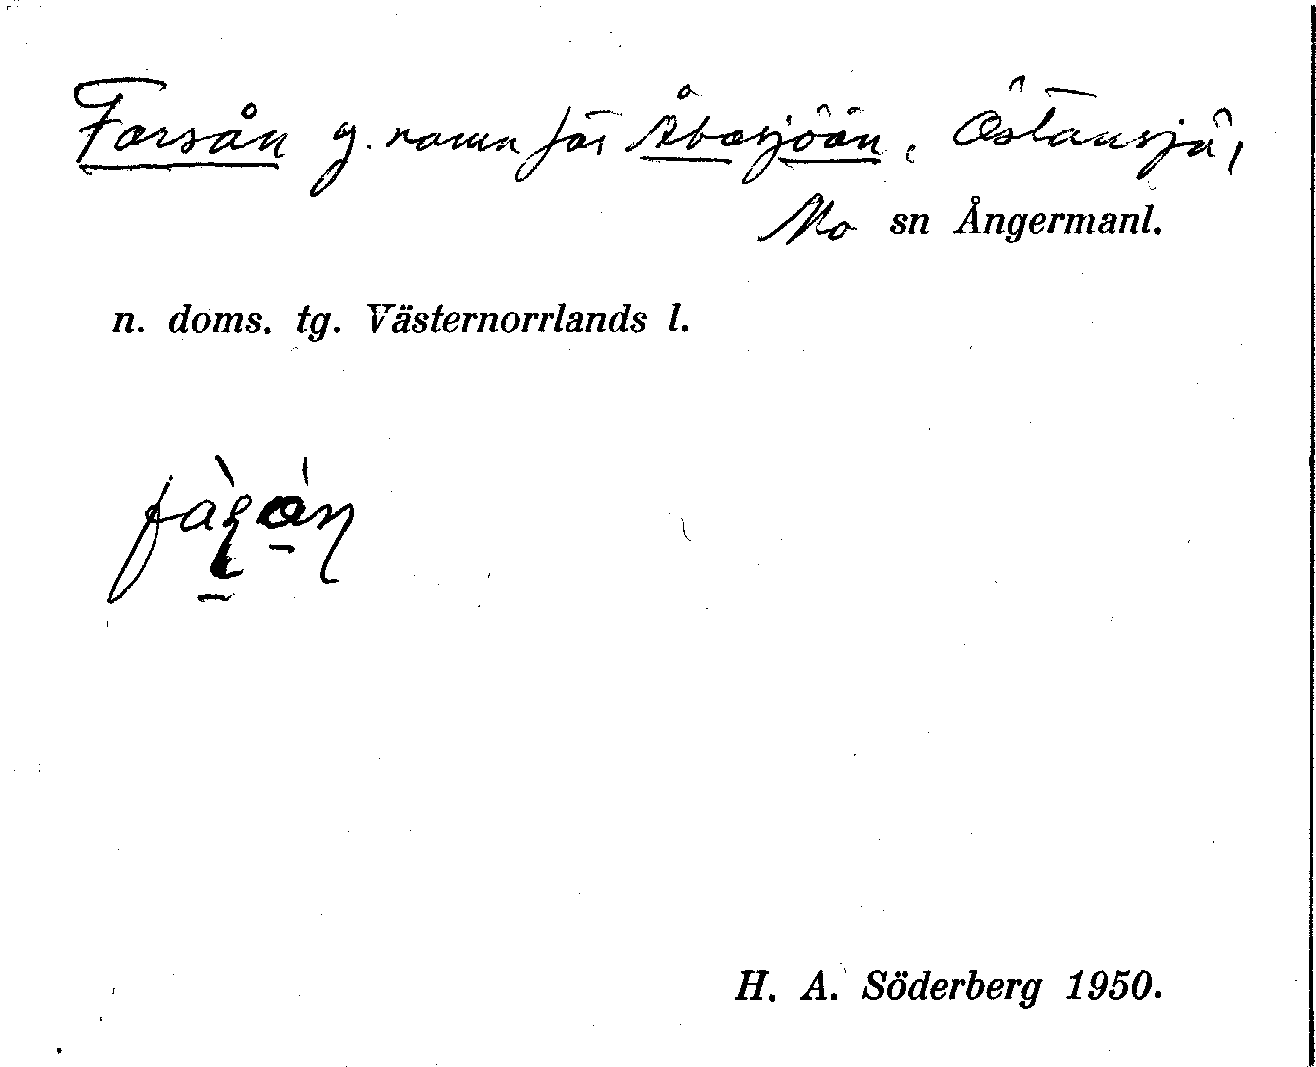 Forsån g. namn för Åbosjöån, Östansjö,
Mo sn Ångermanl.
n. doms. tg. Västernorrlands l.
H. A. Söderberg 1950.